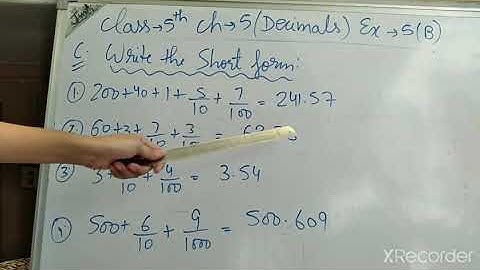 Class→5th Ch→5(Decimals) Ex→5(B)
C: Write the Short form:
① 200+40+1+5/10+7/100 = 241.57
② 60+3+7/10+3/100 =
③ 3+ /10+4/100 = 3.54
④ 500+6/10+9/1000 = 500.609
XRecorder